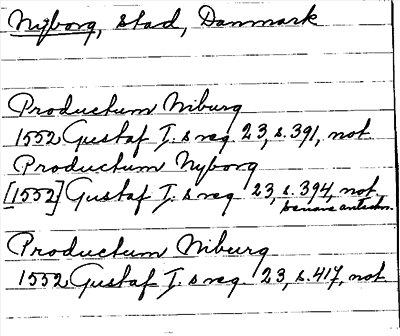 Nyborg, stad, Danmark
Productum Niburg
1552 Gustaf I. s reg. 23, s. 391, not.
Productum Nyborg
[1552] Gustaf I. s reg. 23, s. 394, not.
Productum Niburg
1552 Gustaf I. s reg. 23, s. 417, not.